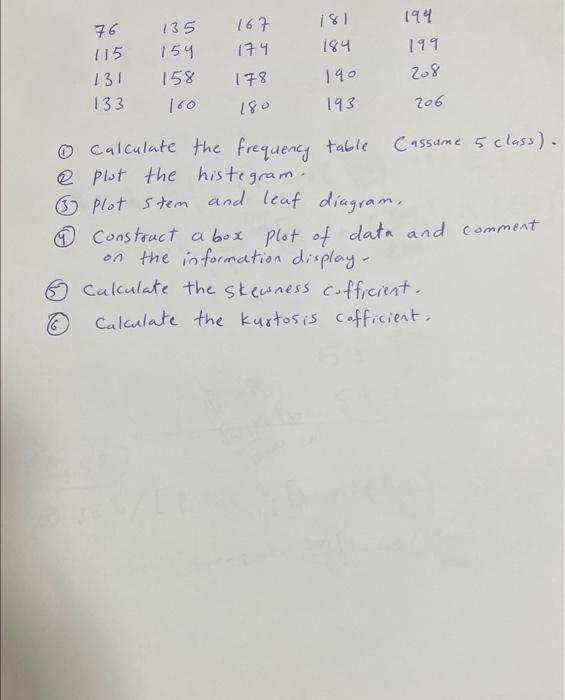 76 135 167 181 194
115 154 174 184 199
131 158 178 190 208
133 160 180 193 206
① Calculate the frequency table (assume 5 class).
② plot the histegram.
③ plot stem and leaf diagram.
④ Construct a box plot of data and comment
on the information display.
⑤ Calculate the skewness cofficient.
⑥ Calculate the kurtosis cofficient.